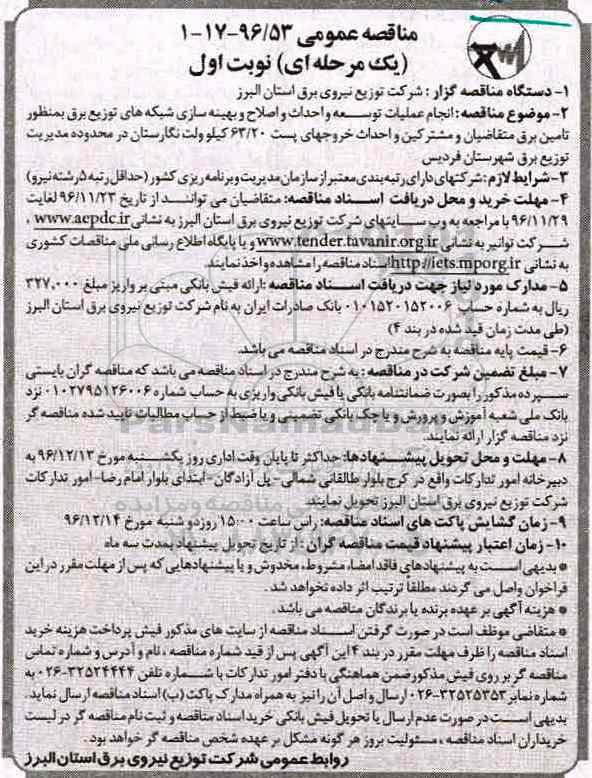 مناقصه عمومی ۹۶/۵۳-۱۷-۱
(یک مرحله ای) نوبت اول
۱- دستگاه مناقصه گزار : شرکت توزیع نیروی برق استان البرز
۲- موضوع مناقصه : انجام عملیات توسعه و احداث و اصلاح و بهینه سازی شبکه های توزیع برق بمنظور
تامین برق متقاضیان و مشترکین و احداث خروجهای پست ۶۳/۲۰ کیلو ولت نگارستان در محدوده مدیریت
توزیع برق شهرستان فردیس
۳- شرایط لازم : شرکتهای دارای رتبه بندی معتبر از سازمان مدیریت و برنامه ریزی کشور (حداقل رتبه ۵ رشته نیرو)
۴- مهلت خرید و محل دریافت اسناد مناقصه: متقاضیان می توانند از تاریخ ۹۶/۱۱/۲۳ لغایت
۹۶/۱۱/۲۹ با مراجعه به وب سایتهای شرکت توزیع نیروی برق استان البرز به نشانی www.aepdc.ir ،
شرکت توانیر به نشانی www.tender.tavanir.org.ir و یا پایگاه اطلاع رسانی ملی مناقصات کشوری
به نشانی http://iets.mporg.ir اسناد مناقصه را مشاهده و اخذ نمایند.
۵- مدارک مورد نیاز جهت دریافت اسناد مناقصه : ارائه فیش بانکی مبنی بر واریز مبلغ ۳۲۷,۰۰۰
ریال به شماره حساب ۰۱۰۱۵۲۰۱۵۲۰۰۶ بانک صادرات ایران به نام شرکت توزیع نیروی برق استان البرز
(طی مدت زمان قید شده در بند ۴)
۶- قیمت پایه مناقصه به شرح مندرج در اسناد مناقصه می باشد.
۷- مبلغ تضمین شرکت در مناقصه : به شرح مندرج در اسناد مناقصه می باشد که مناقصه گران بایستی
سپرده مذکور را بصورت ضمانتنامه بانکی یا فیش بانکی واریزی به حساب شماره ۰۱۰۲۷۹۵۱۲۶۰۰۶ نزد
بانک ملی شعبه آموزش و پرورش و یا چک بانکی تضمینی و یا ضبط از حساب مطالبات تایید شده مناقصه گر
نزد مناقصه گزار ارائه نمایند.
۸- مهلت و محل تحویل پیشنهادها: حداکثر تا پایان وقت اداری روز یکشنبه مورخ ۹۶/۱۲/۱۳ به
دبیرخانه امور تدارکات واقع در کرج بلوار طالقانی شمالی- پل آزادگان- ابتدای بلوار امام رضا- امور تدارکات
شرکت توزیع نیروی برق استان البرز تحویل نمایند.
۹- زمان گشایش پاکت های اسناد مناقصه: راس ساعت ۱۵:۰۰ روز دو شنبه مورخ ۹۶/۱۲/۱۴
۱۰- زمان اعتبار پیشنهاد قیمت مناقصه گران : از تاریخ تحویل پیشنهاد بمدت سه ماه
* بدیهی است به پیشنهادهای فاقد امضاء، مشروط، مخدوش و یا پیشنهادهایی که پس از مهلت مقرر در این
فراخوان واصل می گردند مطلقاً ترتیب اثر داده نخواهد شد.
* هزینه آگهی بر عهده برنده یا برندگان مناقصه می باشد.
* متقاضی موظف است در صورت گرفتن اسناد مناقصه از سایت های مذکور فیش پرداخت هزینه خرید
اسناد مناقصه را ظرف مهلت مقرر در بند ۴ این آگهی پس از قید شماره مناقصه ، نام و آدرس و شماره تماس
مناقصه گر بر روی فیش مذکور ضمن هماهنگی با دفتر امور تدارکات با شماره تلفن ۳۲۵۲۴۴۴۴-۰۲۶ به
شماره نمابر ۳۲۵۲۵۳۵۳-۰۲۶ ارسال و اصل آن را نیز به همراه مدارک پاکت (ب) اسناد مناقصه ارسال نماید.
بدیهی است در صورت عدم ارسال یا تحویل فیش بانکی خرید اسناد مناقصه و ثبت نام مناقصه گر در لیست
خریداران اسناد مناقصه ، مسئولیت بروز هر گونه مشکل بر عهده شخص مناقصه گر خواهد بود .
روابط عمومی شرکت توزیع نیروی برق استان البرز